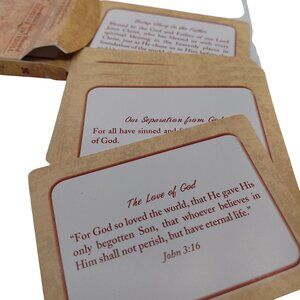 Being Glory to the Father
Blessed be the God and Father of our Lord
Jesus Christ, who has blessed us with every
spiritual blessing in the heavenly places in
Christ, just as He chose us in Him before
foundation of the world,
Our Separation from God
For all have sinned and
of God.
The Love of God
"For God so loved the world, that He gave His
only begotten Son, that whoever believes in
Him shall not perish, but have eternal life."
John 3:16